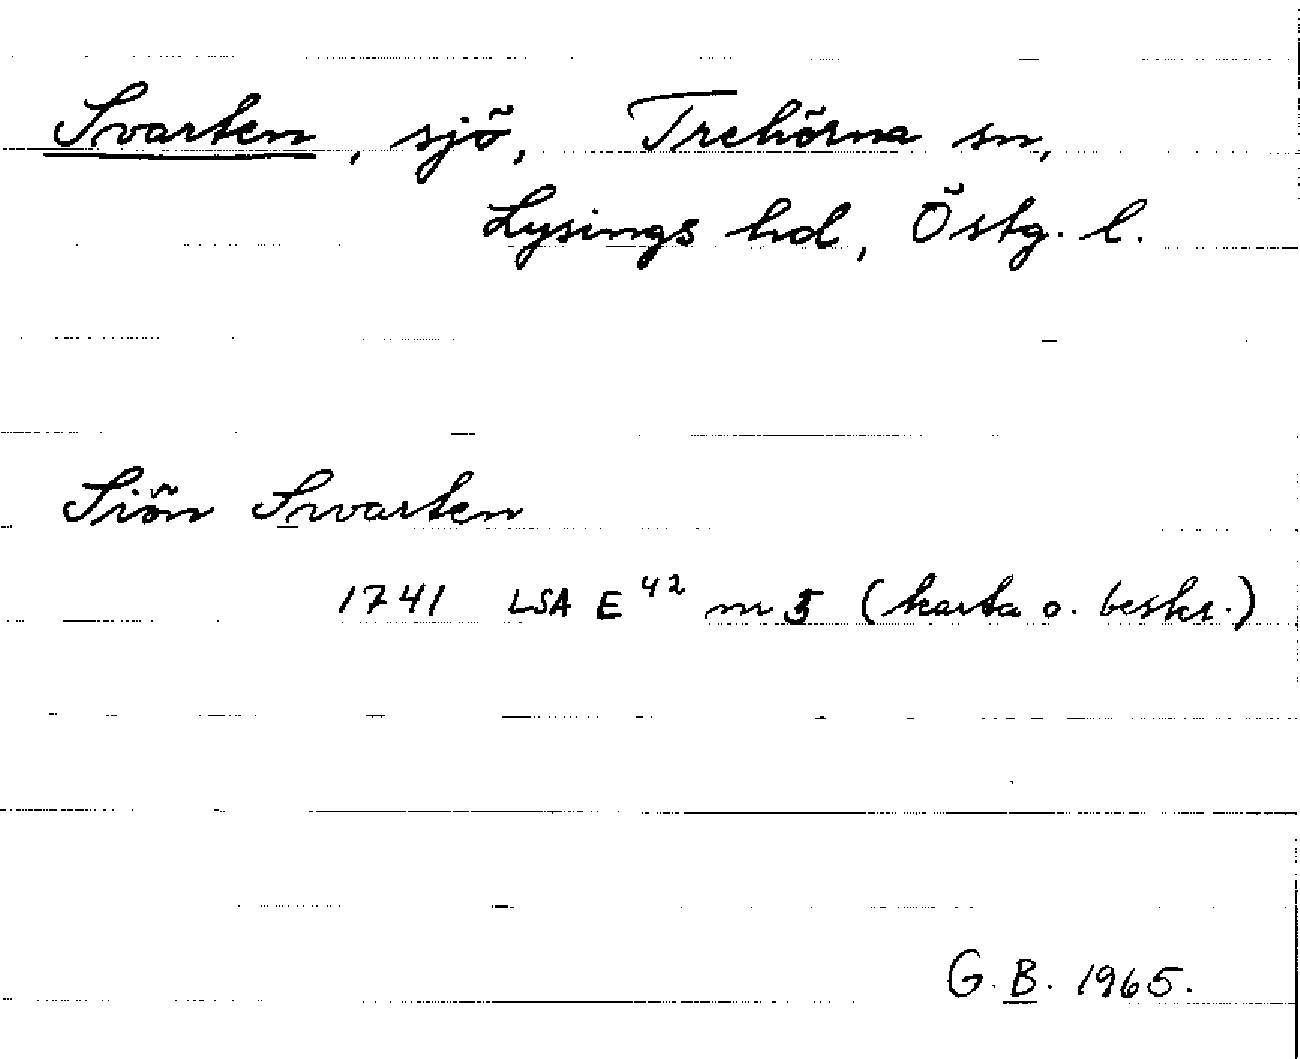 Svarten, sjö, Trehörna sn,
Lysings hd, Östg. l.
Siön Swarten
1741 LSA E 42 nr 5 (karta o. beskr.)
G. B. 1965.